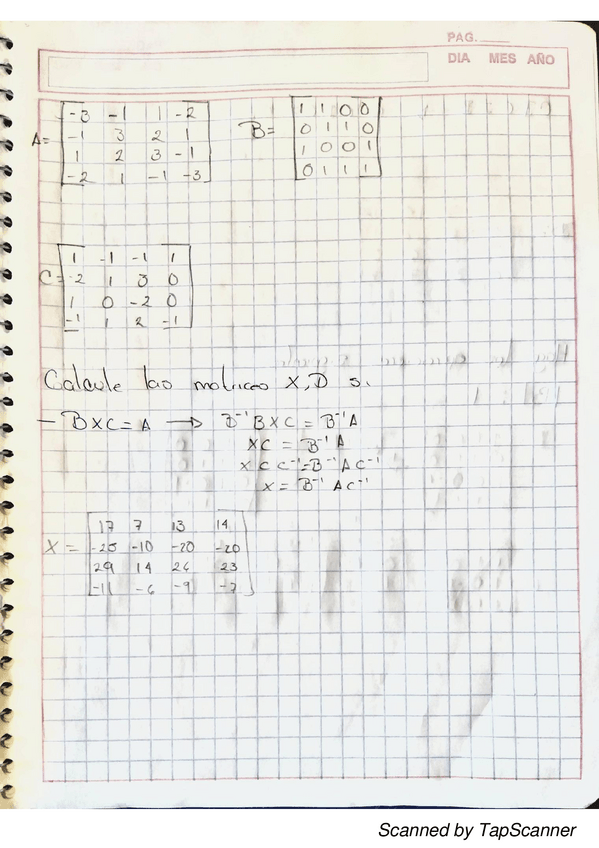 PAG.
DIA MES AÑO
A= -3 -1 1 -2
-1 3 2 1
1 2 3 -1
-2 1 -1 -3
B= 1 1 0 0
0 1 1 0
1 0 0 1
0 1 1 1
C= 1 -1 -1 1
-2 1 3 0
1 0 -2 0
-1 1 2 -1
Calcule las matrices X, D si.
- BXC=A → B⁻¹BXC = B⁻¹A
XC = B⁻¹A
XCC⁻¹=B⁻¹AC⁻¹
X= B⁻¹AC⁻¹
X= 17 7 13 14
-25 -10 -20 -20
29 14 26 23
-11 -6 -9 -7
Scanned by TapScanner